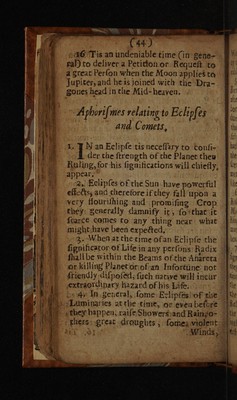 (44)
16 Tis an undeniable time (in gene-
ral) to deliver a Petition or Request to
a great Person when the Moon applies to
Jupiter, and he is joined with the Dra-
gones head in the Mid-heaven.
Aphorismes relating to Eclipses
and Comets,
1. IN an Eclipse tis necessary to consi-
der the strength of the Planet then
Ruling, for his significations will chiefly,
appear.
2. Eclipses of the Sun have powerful
effects, and therefore if they fall upon a
very flourishing and promising Crop
they generally damnify it, so that it
scarce comes to any thing near what
might have been expected.
3. When at the time of an Eclipse the
significator of Life in any persons Radix
shall be within the Beams of the Anareta
or killing Planet or of an Infortune not
friendly disposed, such native will incur
extraordinary hazard of his Life.
4. In general, some Eclipses of the
Luminaries at the time, or even before
they happen, raise Showers and Rain, o-
thers great droughts, some violent
Winds,